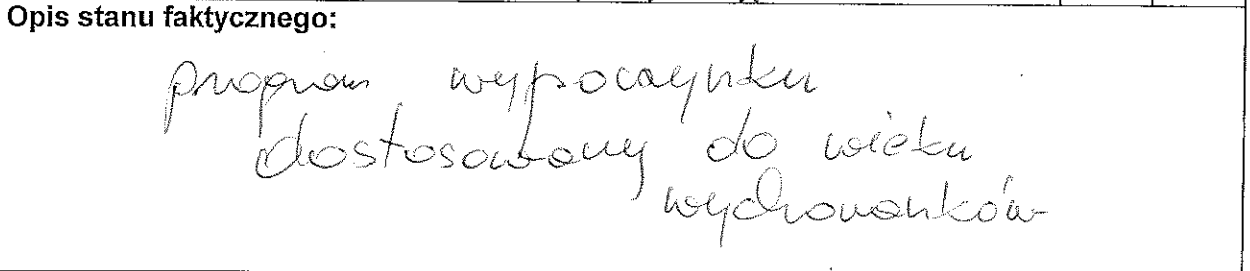 Opis stanu faktycznego:
program wypoczynku
dostosowany do wieku
wychowanków